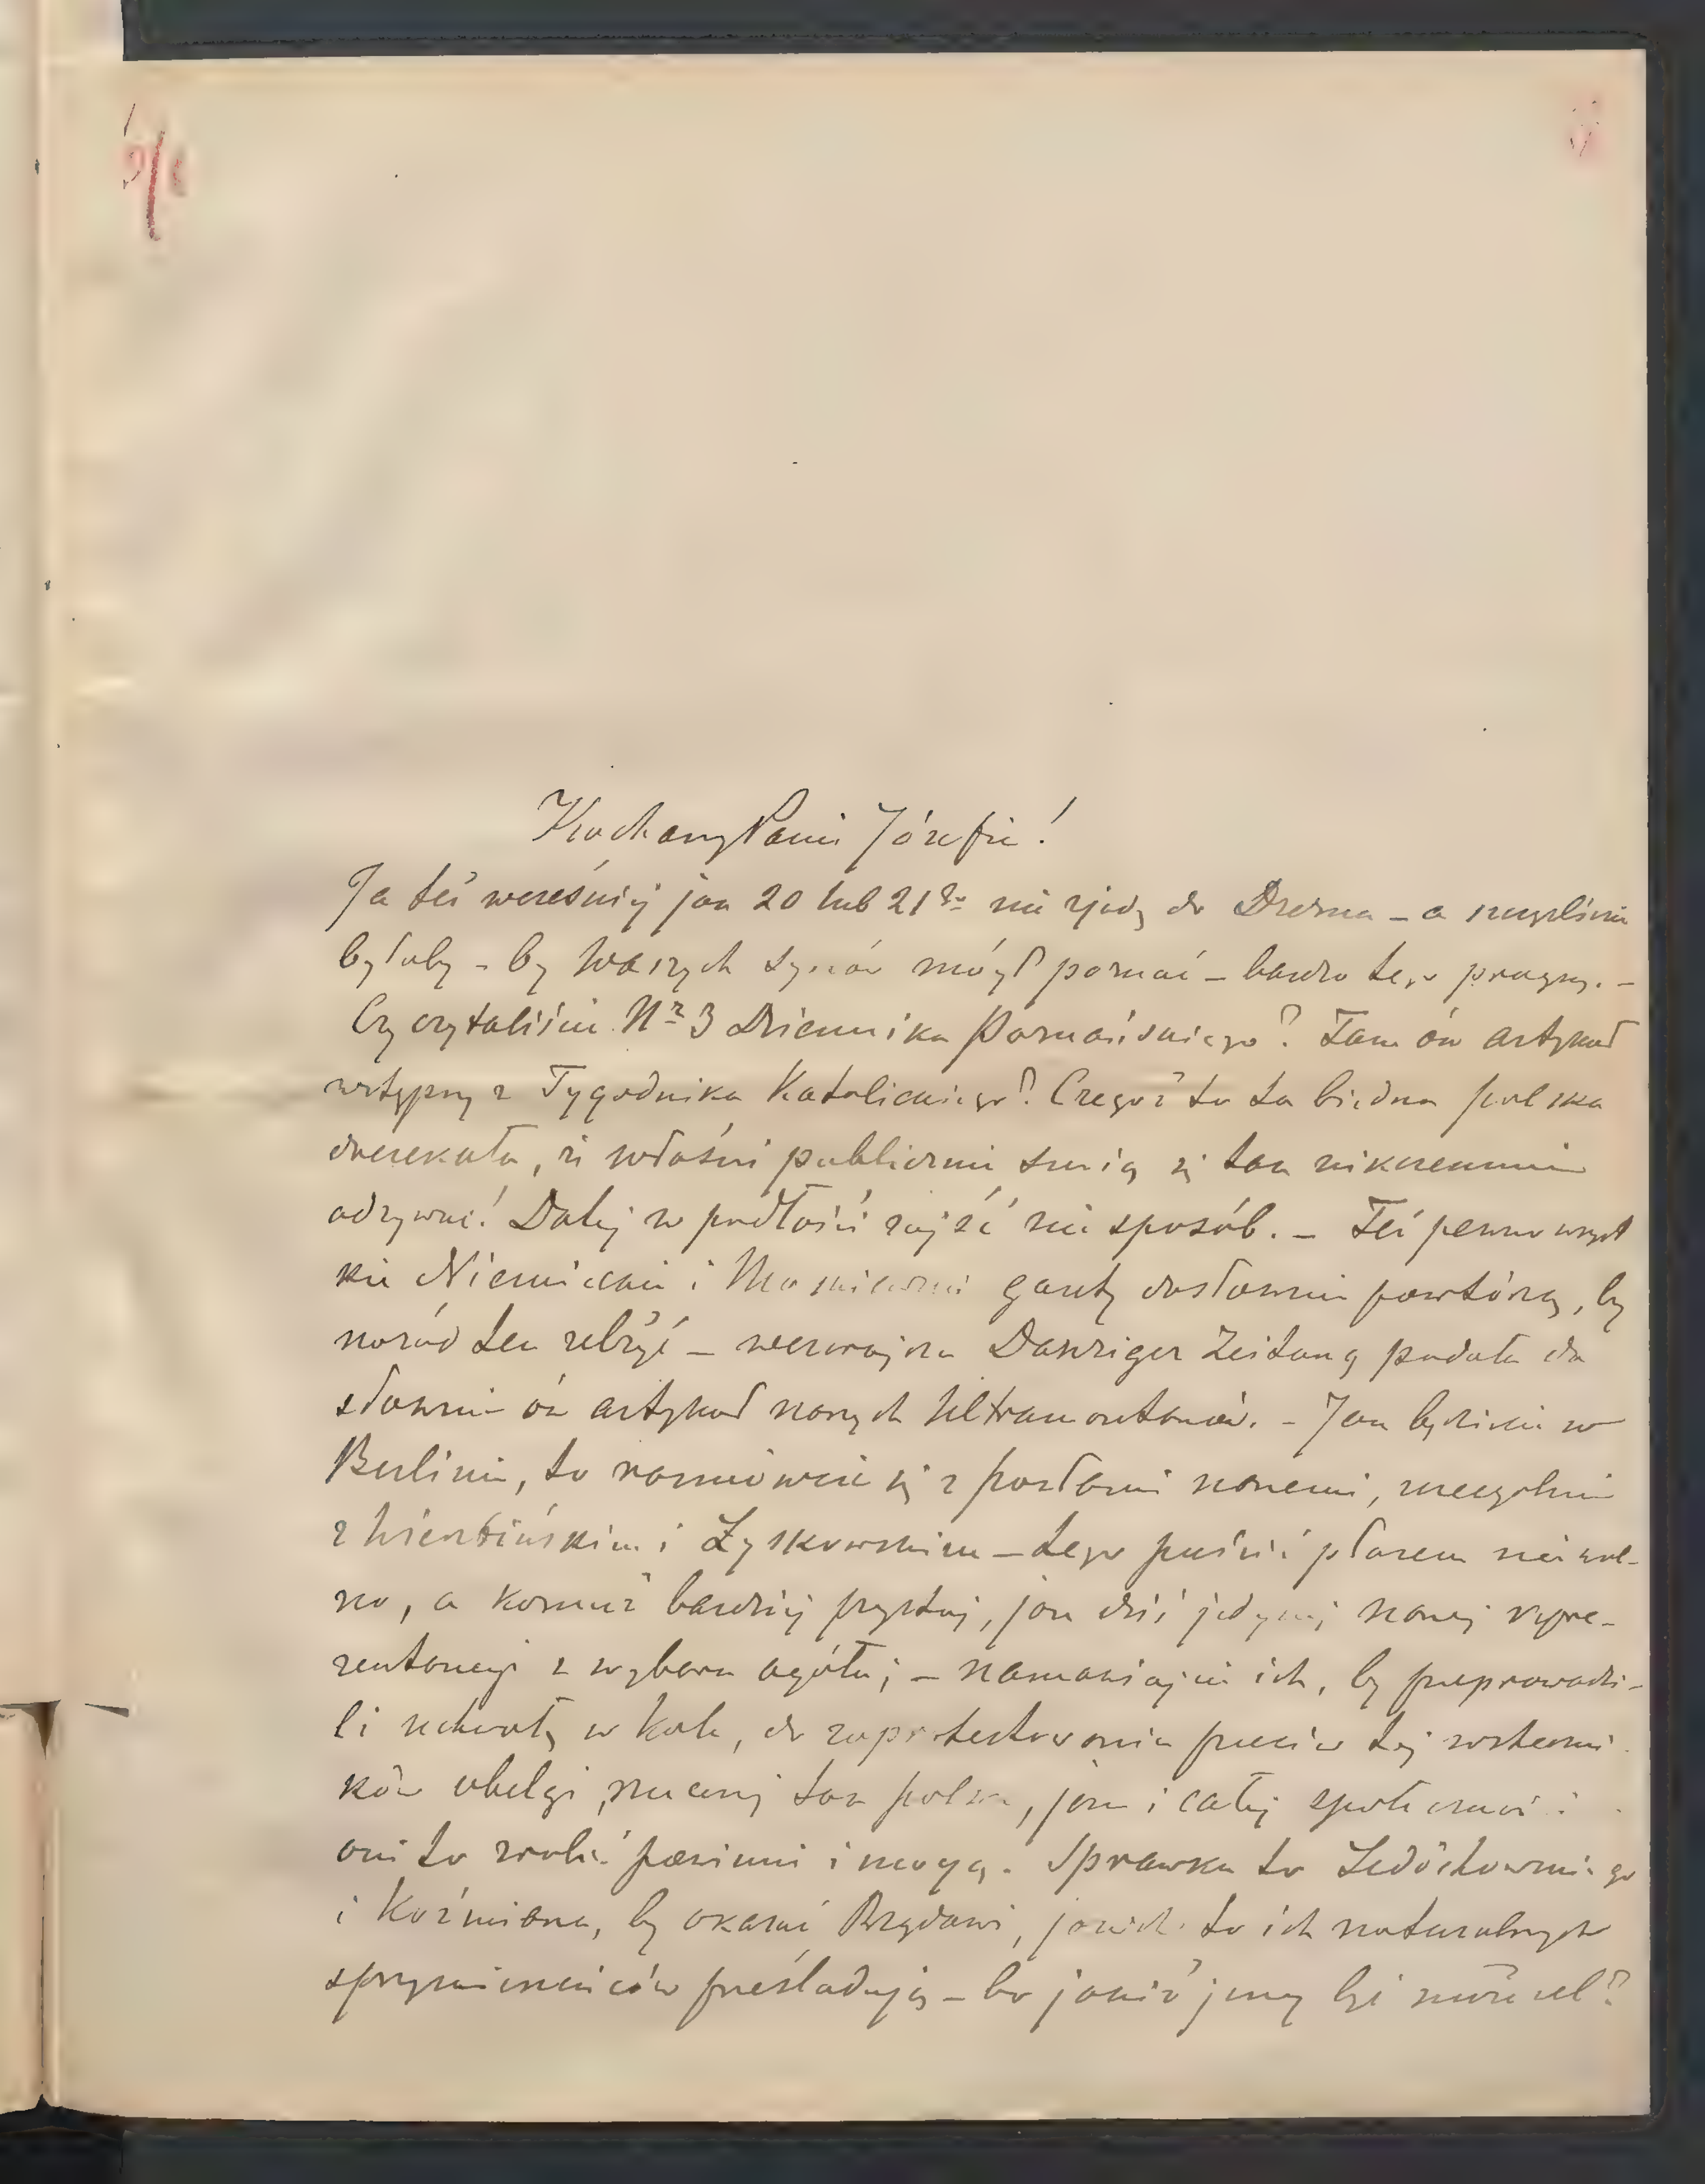 Kochany Panie Józefie!
Ja też wcześniej jak 20 lub 21go nie zjadę do Drezna – a szczęśliwie
byłoby – by Waszych synów mógł poznać – bardzo tego pragnę. –
Czy czytaliście No 3 Dziennika Poznańskiego? Tam ów artykuł
wstępny z Tygodnika Katolickiego? Czegoż to ta biedna polska
doczekała, iż właśni publicznie śmią się tak nikczemnie
odzywać! Dalej w podłości zajść nie sposób. – Też pewno wszyst
kie Niemieckie i gazety dosłownie powtórzą, by
naród ten zelżyć – wczorajsza Danziger Zeitung podała do
słownie ów artykuł naszych Ultramontanów. – Jak będziecie w
Berlinie, to rozmówcie się z posłami naszemi, szczególnie
z i Łyskowskim – tego puścić płazem nie wol-
no, a komuż bardziej przystoi, jak dziś jedynej naszej repre-
zentacyi z wyboru ogółu; – namawiajcie ich, by przeprowadzi-
li uchwałę w Kole, do zaprotestowania przeciw tej wsteczni
ków obelgi, rzuconej tak polsce, jak i całej społeczności
oni to zrobić powinni i mogą. Sprawka to Ledóchowskiego
i Koźmiana, by okazać Rządowi, jakich to ich naturalnych
sprzymierzeńców prześladują – bo jakiż inny być może cel?